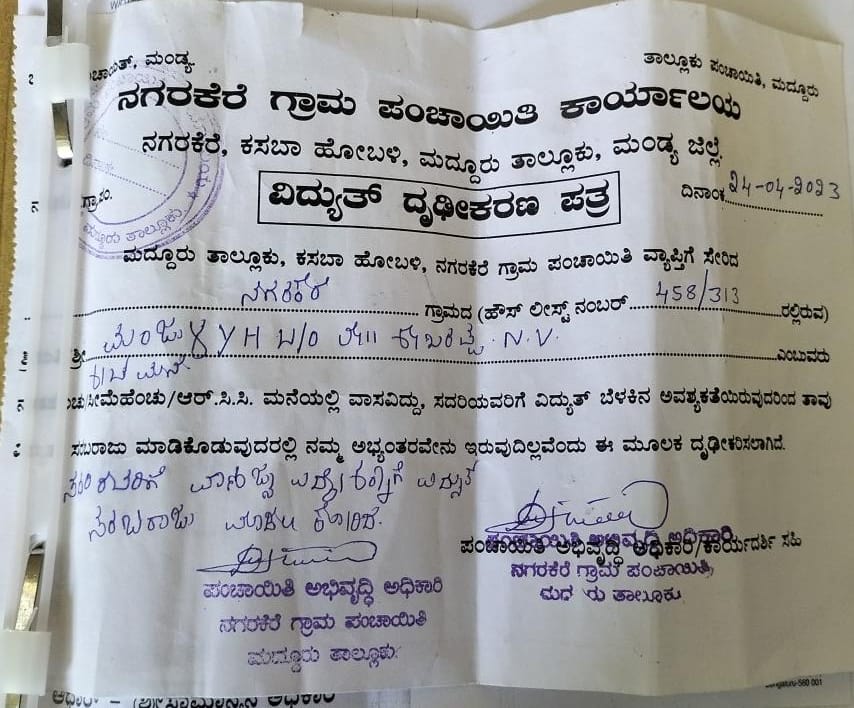 ಪಂಚಾಯತ್, ಮಂಡ್ಯ.
ತಾಲ್ಲೂಕು ಪಂಚಾಯಿತಿ, ಮದ್ದೂರು
ನಗರಕೆರೆ ಗ್ರಾಮ ಪಂಚಾಯಿತಿ ಕಾರ್ಯಾಲಯ
ನಗರಕೆರೆ, ಕಸಬಾ ಹೋಬಳಿ, ಮದ್ದೂರು ತಾಲ್ಲೂಕು, ಮಂಡ್ಯ ಜಿಲ್ಲೆ.
ವಿದ್ಯುತ್ ದೃಢೀಕರಣ ಪತ್ರ
ದಿನಾಂಕ 24-04-2023
ಮದ್ದೂರು ತಾಲ್ಲೂಕು
ಮದ್ದೂರು ತಾಲ್ಲೂಕು, ಕಸಬಾ ಹೋಬಳಿ, ನಗರಕೆರೆ ಗ್ರಾಮ ಪಂಚಾಯಿತಿ ವ್ಯಾಪ್ತಿಗೆ ಸೇರಿದ
ನಗರಕೆರೆ ಗ್ರಾಮದ (ಹೌಸ್ ಲೀಸ್ಟ್ ನಂಬರ್ 458/313 ರಲ್ಲಿರುವ)
ಶ್ರೀ ಮಂಜುಳ Y H W/o N.V. ಎಂಬುವರು
ಸೀಮೆಹೆಂಚು/ಆರ್.ಸಿ.ಸಿ. ಮನೆಯಲ್ಲಿ ವಾಸವಿದ್ದು, ಸದರಿಯವರಿಗೆ ವಿದ್ಯುತ್ ಬೆಳಕಿನ ಅವಶ್ಯಕತೆಯಿರುವುದರಿಂದ ತಾವು
ಸರಬರಾಜು ಮಾಡಿಕೊಡುವುದರಲ್ಲಿ ನಮ್ಮ ಅಭ್ಯಂತರವೇನು ಇರುವುದಿಲ್ಲವೆಂದು ಈ ಮೂಲಕ ದೃಢೀಕರಿಸಲಾಗಿದೆ.
ವಿದ್ಯುತ್
ಸರಬರಾಜು ಮಾಡಲು ಕೋರಿದೆ.
ಪಂಚಾಯಿತಿ ಅಭಿವೃದ್ಧಿ ಅಧಿಕಾರಿ/ಕಾರ್ಯದರ್ಶಿ ಸಹಿ
ಪಂಚಾಯಿತಿ ಅಭಿವೃದ್ಧಿ ಅಧಿಕಾರಿ
ನಗರಕೆರೆ ಗ್ರಾಮ ಪಂಚಾಯಿತಿ
ಮದ್ದೂರು ತಾಲ್ಲೂಕು
ಪಂಚಾಯಿತಿ ಅಭಿವೃದ್ಧಿ ಅಧಿಕಾರಿ
ನಗರಕೆರೆ ಗ್ರಾಮ ಪಂಚಾಯಿತಿ
ಮದ್ದೂರು ತಾಲ್ಲೂಕು